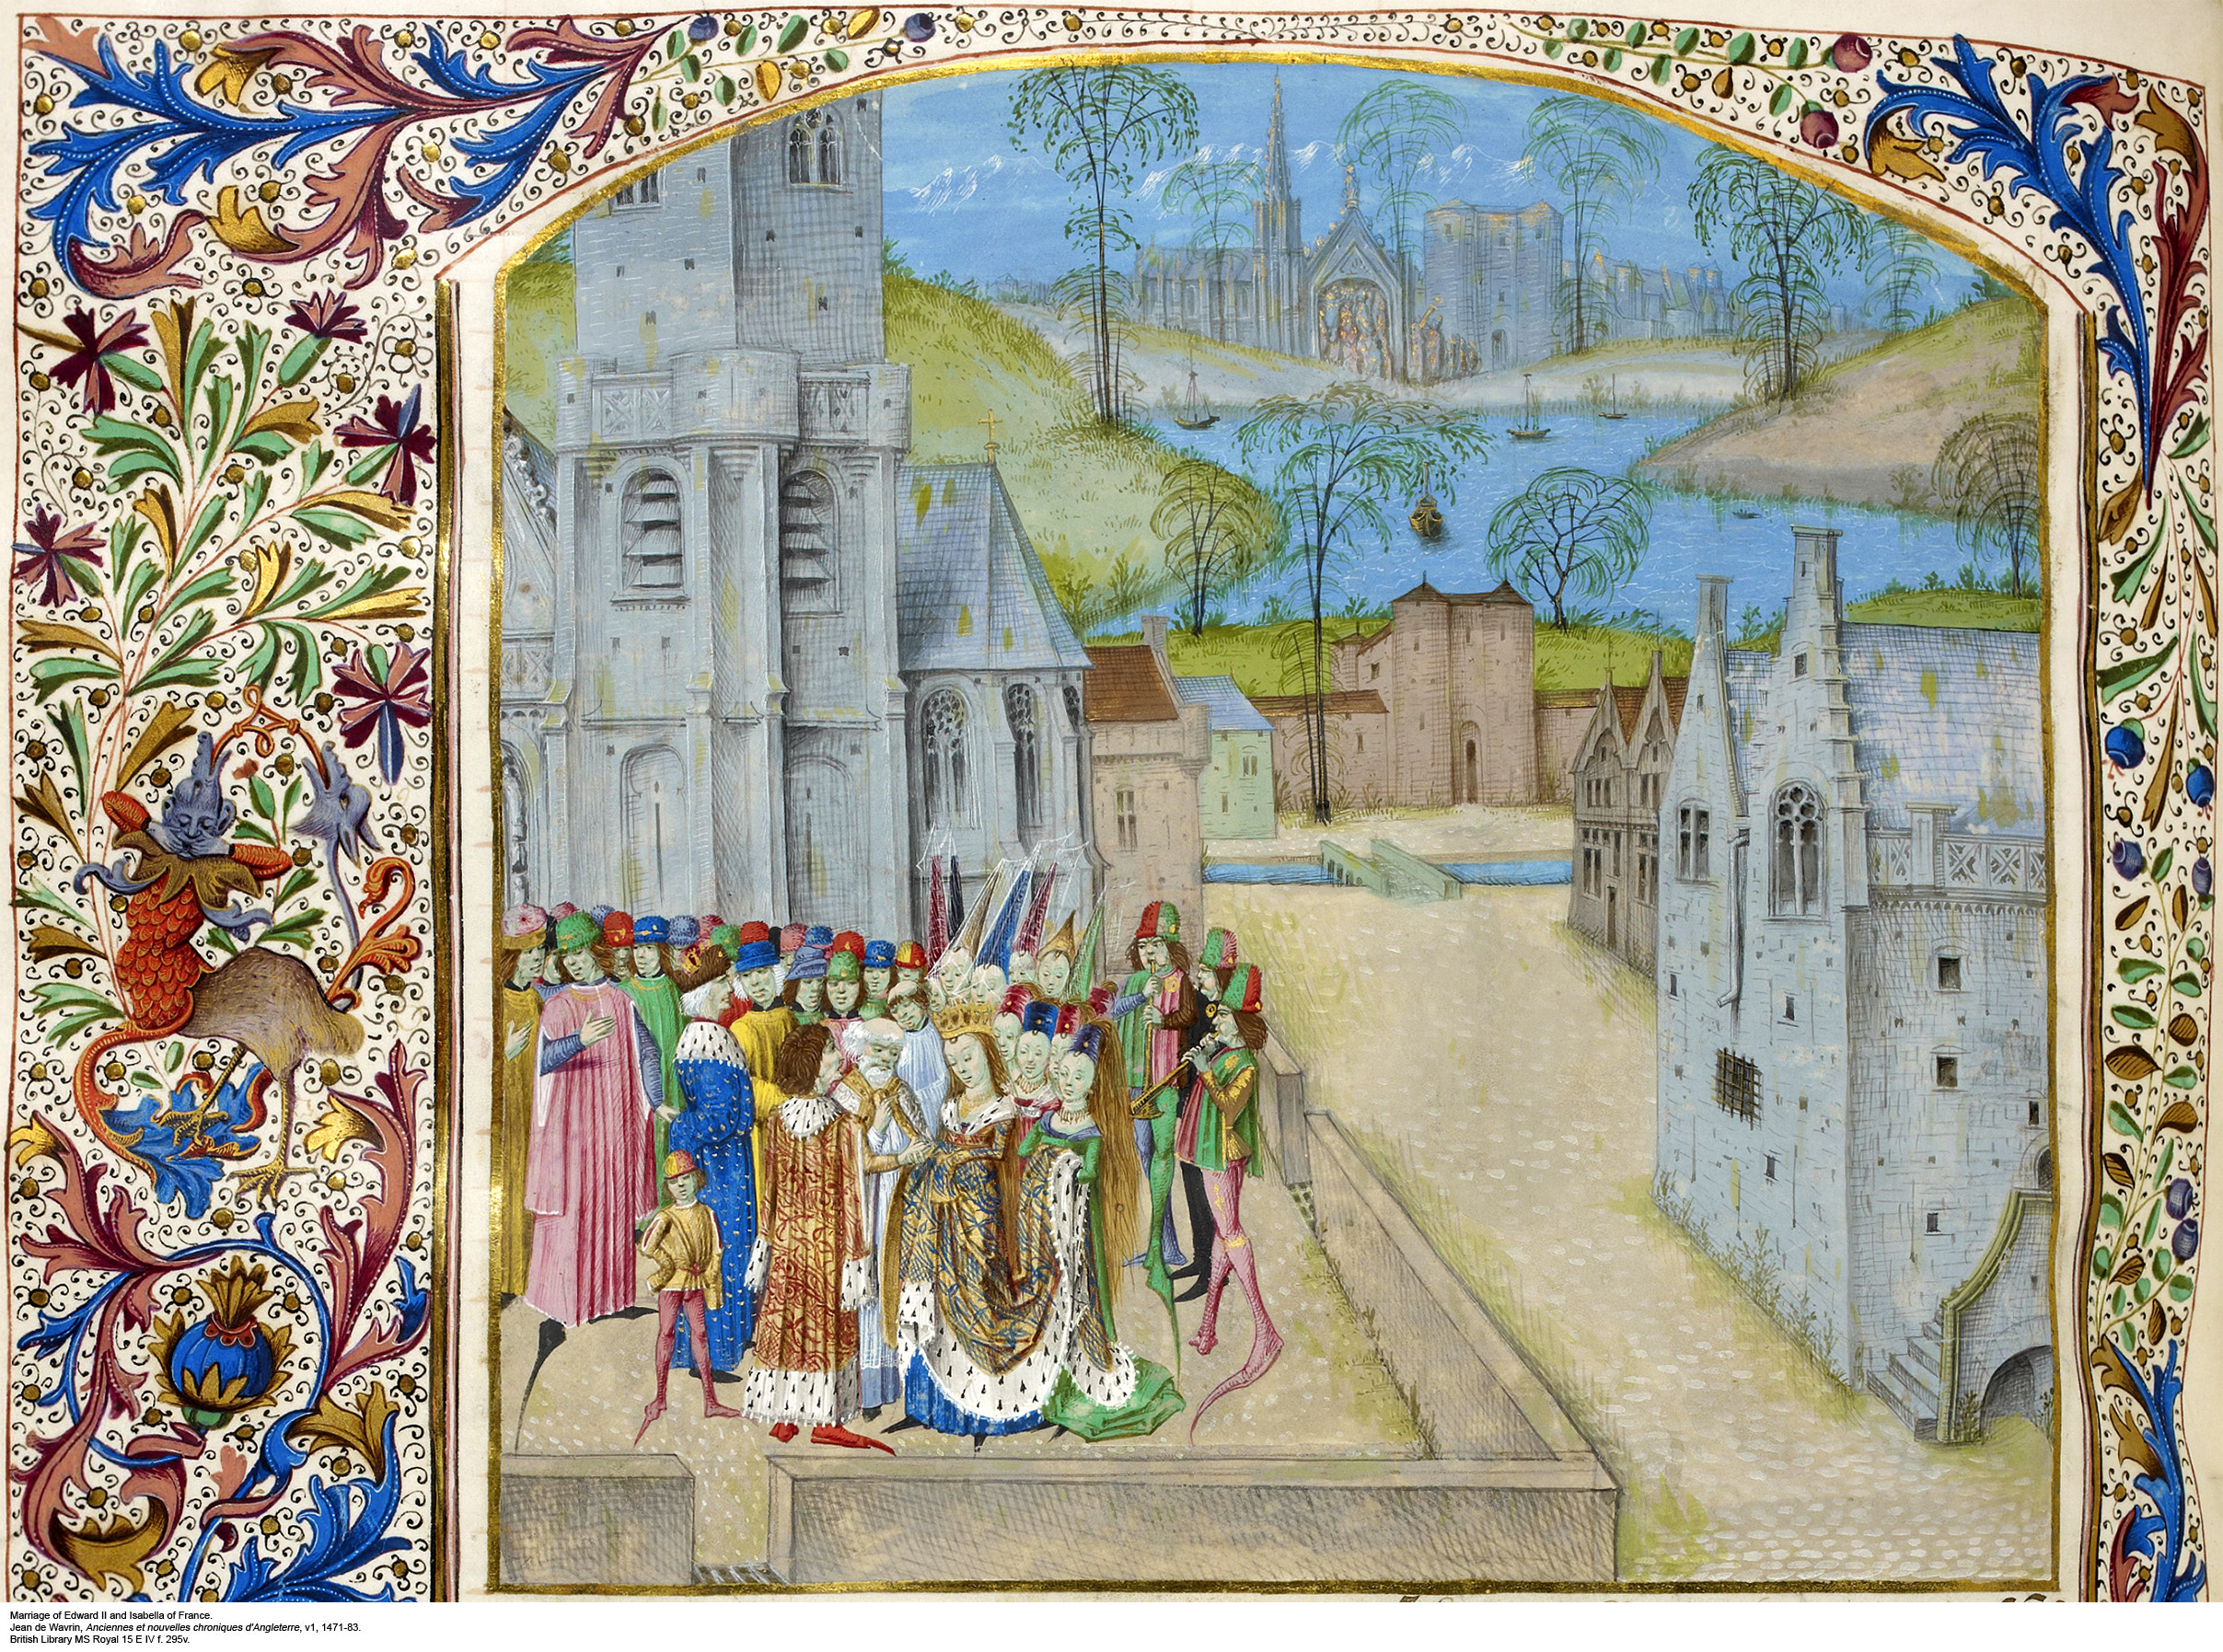 Marriage of Edward II and Isabella of France.
Jean de Wavrin, Anciennes et nouvelles chroniques d'Angleterre, v1, 1471-83.
British Library MS Royal 15 E IV f. 295v.